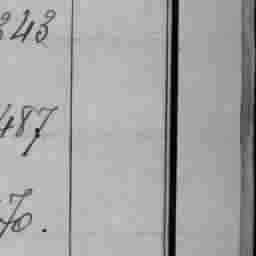 243
487
70.